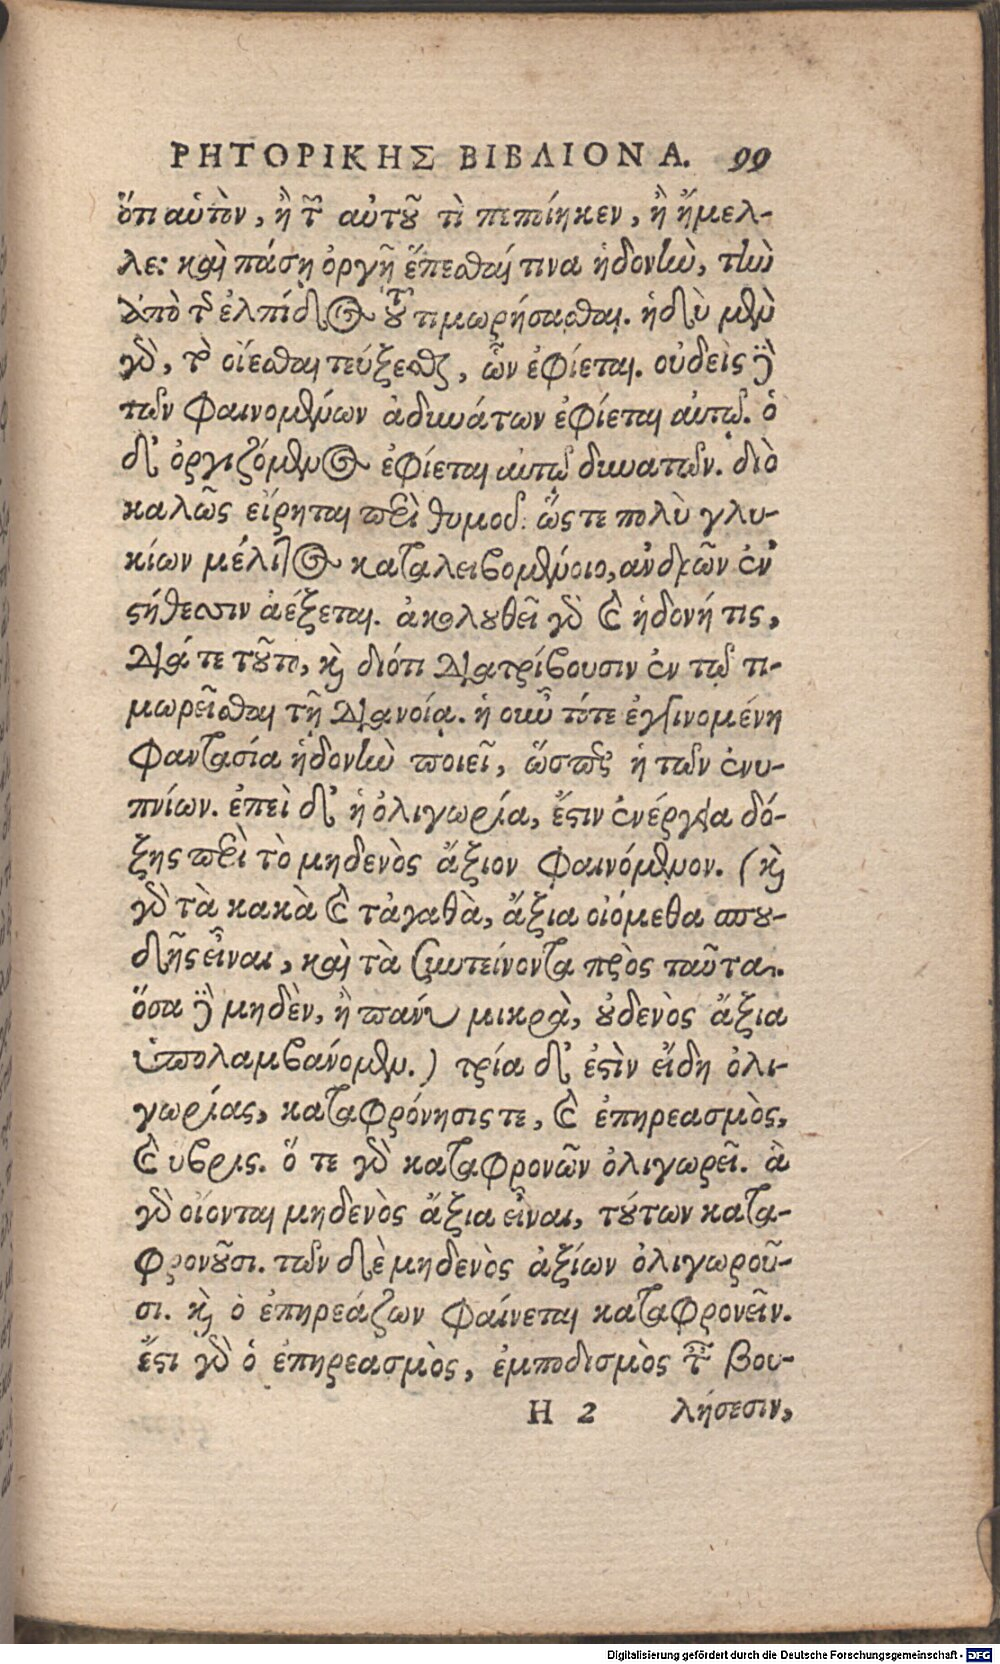 ΡΗΤΟΡΙΚΗΣ ΒΙΒΛΙΟΝ Α. 99
ὅτι αὑτὸν, ἢ τῶν αὑτοῦ τὶ πεποίηκεν, ἢ ἤμελ-
λε: καὶ πάσῃ ὀργῇ ἕπεσθαί τινα ἡδονὴν, τὴν
ἀπὸ τῆς ἐλπίδος τοῦ τιμωρήσασθαι. ἡδὺ μὲν
γὰρ, τὸ οἴεσθαι τεύξεσθαι, ὧν ἐφίεται. οὐδεὶς δὲ
τῶν φαινομένων ἀδυνάτων ἐφίεται αὑτῷ. ὁ
δ' ὀργιζόμενος ἐφίεται αὑτῷ δυνατῶν. διὸ
καλῶς εἴρηται περὶ θυμοῦ: ὥς τε πολὺ γλυ-
κίων μέλιτος καταλειβομένοιο, ἀνδρῶν ἐν
στήθεσσιν ἀέξεται. ἀκολουθεῖ γὰρ καὶ ἡδονή τις,
διά τε τοῦτο, καὶ διότι διατρίβουσιν ἐν τῷ τι-
μωρεῖσθαι τῇ διανοίᾳ. ἡ οὖν τότε ἐγγινομένη
φαντασία ἡδονὴν ποιεῖ, ὥσπερ ἡ τῶν ἐνυ-
πνίων. ἐπεὶ δ' ἡ ὀλιγωρία, ἔστιν ἐνέργεια δό-
ξης περὶ τὸ μηδενὸς ἄξιον φαινόμενον. (καὶ
γὰρ τὰ κακὰ καὶ τἀγαθὰ, ἄξια οἰόμεθα σπου-
δῆς εἶναι, καὶ τὰ συντείνοντα πρὸς ταῦτα.
ὅσα δὲ μηδὲν, ἢ πάνυ μικρὰ, οὐδενὸς ἄξια
ὑπολαμβάνομεν.) τρία δ' ἐστὶν εἴδη ὀλι-
γωρίας, καταφρόνησις τε, καὶ ἐπηρεασμὸς,
καὶ υβρις. ὅ τε γὰρ καταφρονῶν ὀλιγωρεῖ. ἃ
γὰρ οἴονται μηδενὸς ἄξια εἶναι, τούτων κατα-
φρονοῦσι. τῶν δὲ μηδενὸς ἀξίων ὀλιγωροῦ-
σι. καὶ ὁ ἐπηρεάζων φαίνεται καταφρονεῖν.
ἔστι γὰρ ὁ ἐπηρεασμὸς, ἐμποδισμὸς ταῖς βου-
Η 2 λήσεσιν,
Digitalisierung gefördert durch die Deutsche Forschungsgemeinschaft - DFG